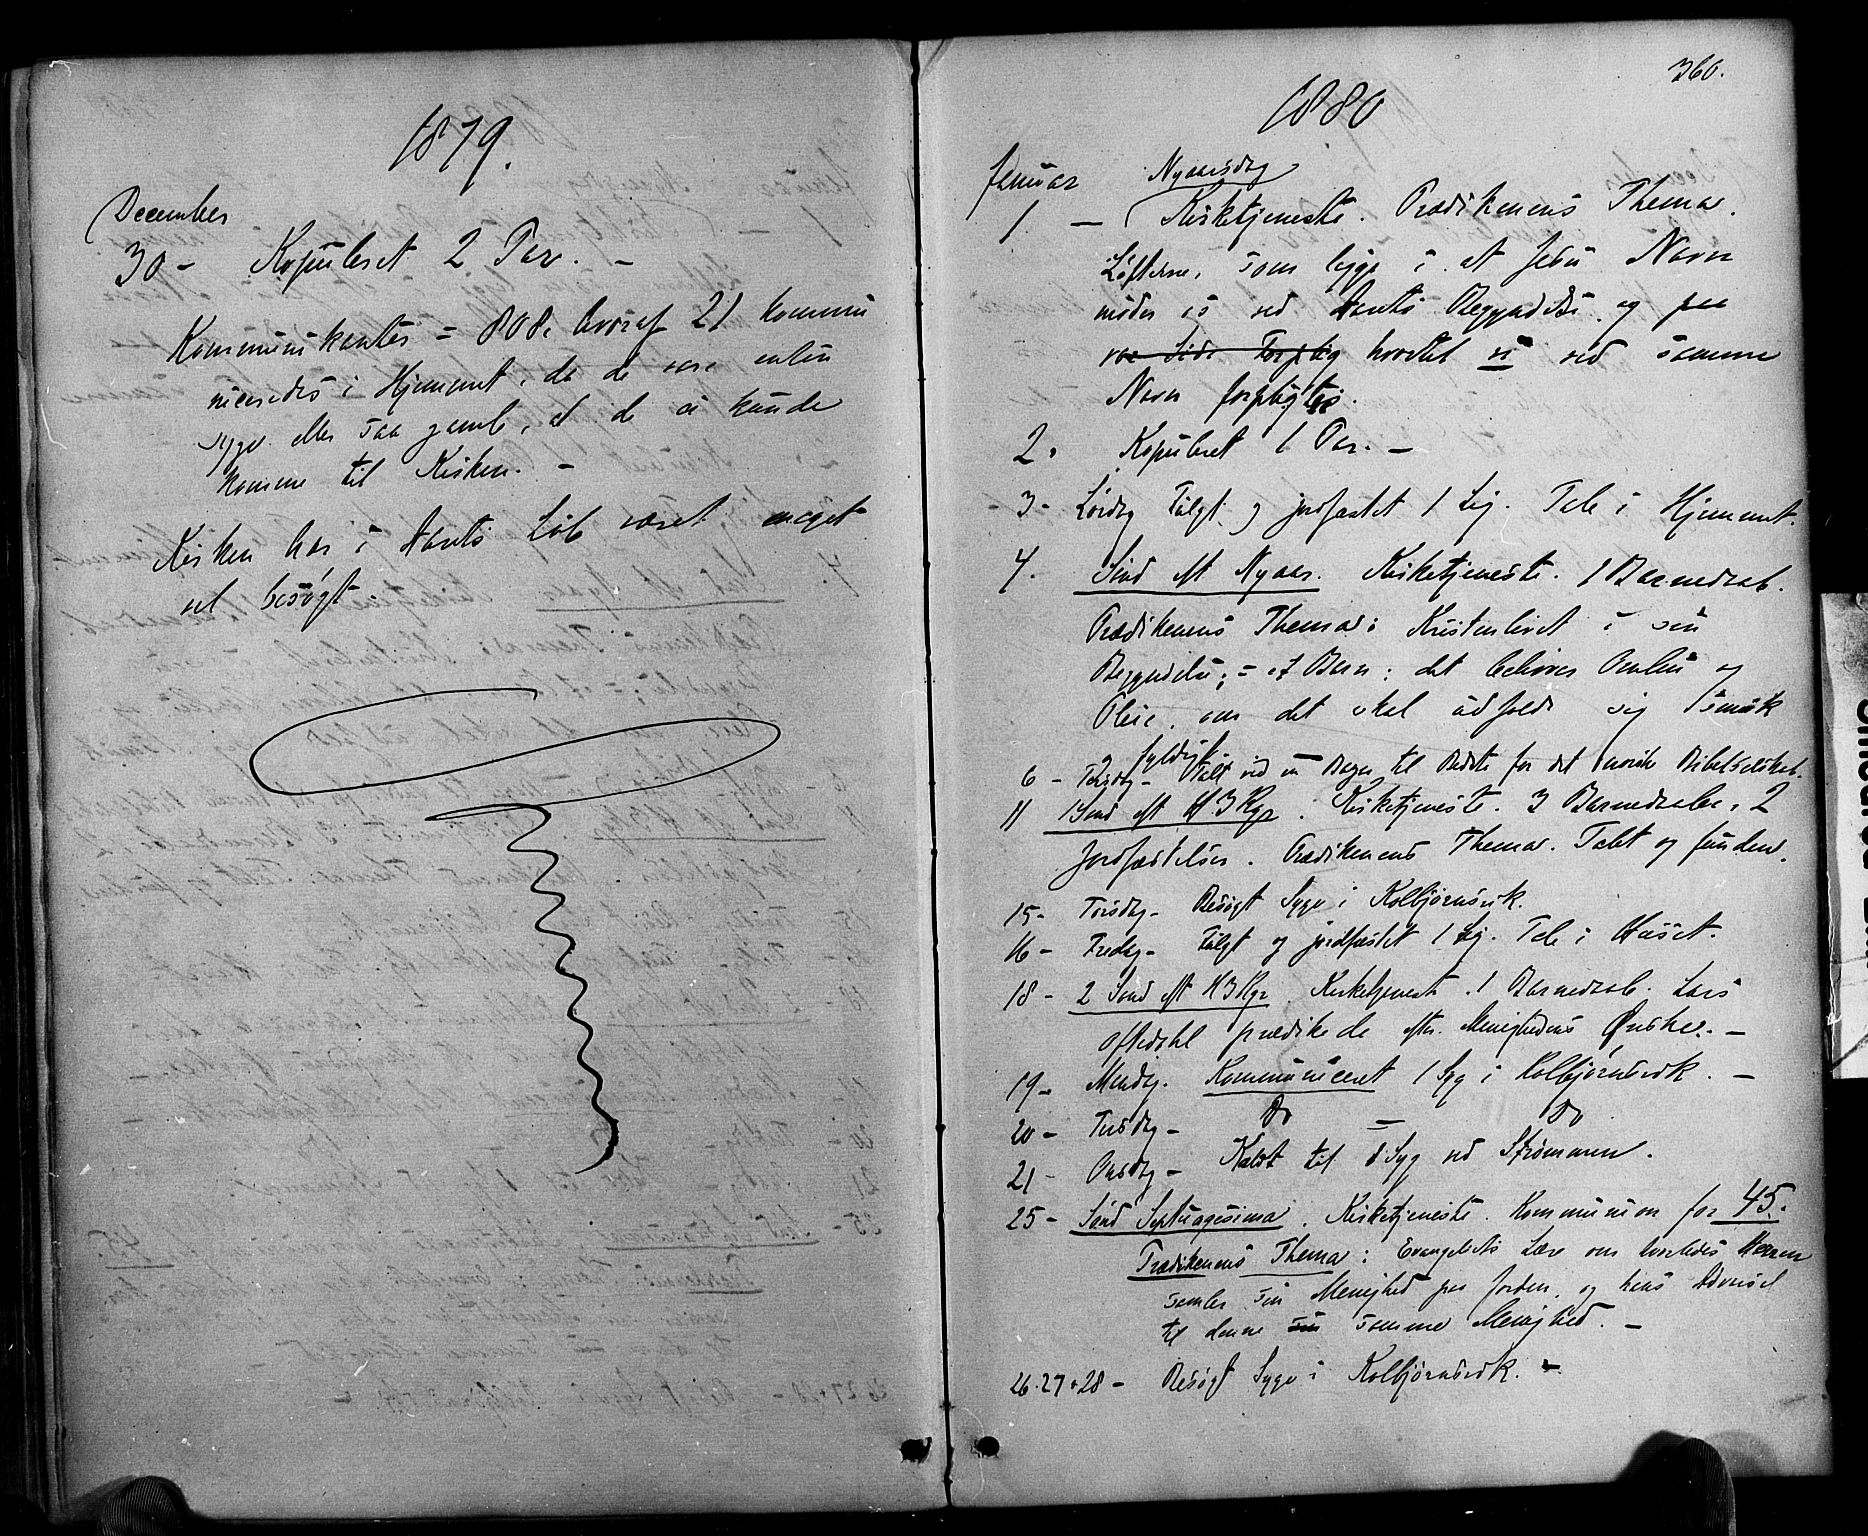 1879.
December
30 - Kopuleret 2 Par. -
Kommunikanter = 808, hvoraf 21 kommuni
niceredes i Hjemmet, da de vare enten
syge eller saa gamle, at de ei kunde
komme til Kirken. -
Kirken har i Aarets Løb været meget
vel besøgt.
360.
1880
Januar Nyaarsdag
1. - Kirketjeneste. Prædikenens Thema.
Løfterne, som ligge i, at Jesu Navn
møder os ved Aarets Begyndelse, og paa
vor Side Forplig hvortil vi ved samme
Navn forpligtes.
2. Kopuleret 1 Par. -
3 - Lørdag Fulgt og jordfæstet 1 Lig. Tale i Hjemmet.
4. Sønd eft Nyaar. Kirketjeneste. 1 Barnedaab.
Prædikenens Thema: Kristenlivet i sin
Begyndelse, = et Barn: det behøver Omhu og
Pleie, om det skal udfolde sig smuk
og fyldigt.
6 - Tirsdag - Talt ved en Bazar til Bedste for det norske Bibelselskab.
11 1 Sønd eft H 3 Kgr. Kirketjeneste. 3 Barnedaaber, 2
Jordfæstelser. Prædikenens Thema. Tabt og funden.
15 - Torsdag - Besøgt Syge i Kolbjørnsvik.
16 - Fredag - Fulgt og jordfæstet 1 Lig. Tale i Huset.
18 - 2 Sønd eft H 3 Kgr. Kirketjeneste. 1 Barnedaab. Lars
Oftedahl prædikede efter Menighedens Ønske. -
19 - Mandag. Kommuniceret 1 Syg i Kolbjørnsvik. -
20 - Tirsdag - Do - Do
21 - Onsdag - Kaldt til Syg ved Strømmen.
25 - Sønd Septuagesima. Kirketjeneste. Kommunion for 45.
Prædikenens Thema: Evangeliets Lære om hvorledes Herren
samler sin Menighed paa Jorden, og hans Advarsel
til denne sin samme Menighed. -
26. 27 + 28 - Besøgt Syge i Kolbjørnsvik. -